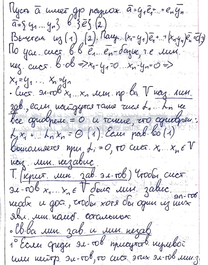 Пусть a̅ имеет др разлож. a̅ = y₁e̅₁ + ... + eₙyₙ
a̅ = {y₁...yₙ} в {e̅} (2)
Вычтем из (1) (2).
По усл. сист. в e₁...eₙ - базис, т.е. лин.
нез. сист. в-ов ⇒ x₁-y₁=0 ... xₙ-yₙ=0 ⇒
x₁=y₁ ... xₙ=yₙ
• Сист. эл-тов x₁...xₙ лин. пр-ва V наз. лин.
зав., если найдутся такие числа L₁...Lₙ не
все одноврем = 0 и такие, что одноврем.
L₁x₁ + ... Lₙxₙ = 0 (1). Если рав-во (1)
выполняется при L = 0, то сист. x₁...xₙ ∈ V
наз. лин. независ
T (крит. лин. зав эл-тов) Чтобы сист
эл-тов x₁...xₙ ∈ V была лин. завис.
необх. и дос., чтобы хотя бы один из них
был лин. комб. остальных
• Св-ва лин. зав и лин. незав
1° Если среди эл-тов присутств. нулевой
или нейтр эл-тов, то сист. этих эл-тов лин. з.